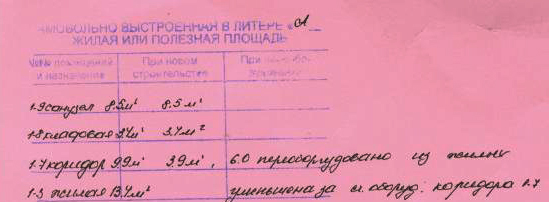 САМОВОЛЬНО ВЫСТРОЕННАЯ В ЛИТЕРЕ «А
ЖИЛАЯ ИЛИ ПОЛЕЗНАЯ ПЛОЩАДЬ
№№ помещений и назначение При новом строительстве При
1-9 санузел 8.5м² 8.5м²
1-8 кладовая 3.7м² 3.7м²
1-7 коридор 9.9м² 3.9м², 6.0 переоборудовано из жилых
1-3 жилая 13.7м² уменьшена за сч. оборуд. коридора 1-7